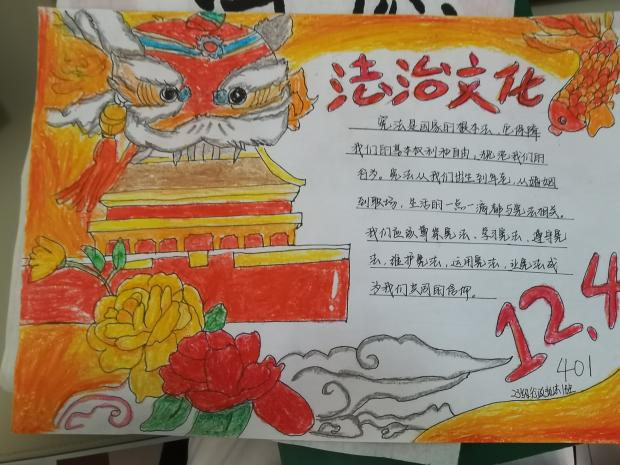 法治文化
宪法是国家的根本法，它保障
我们的基本权利和自由，规范我们的
行为。宪法从我们出生到年老，从婚姻
到职场，生活的一点一滴都与宪法相关。
我们应该尊崇宪法、学习宪法，遵守宪
法，维护宪法，运用宪法，让宪法成
为我们共同的信仰。
12.4
401